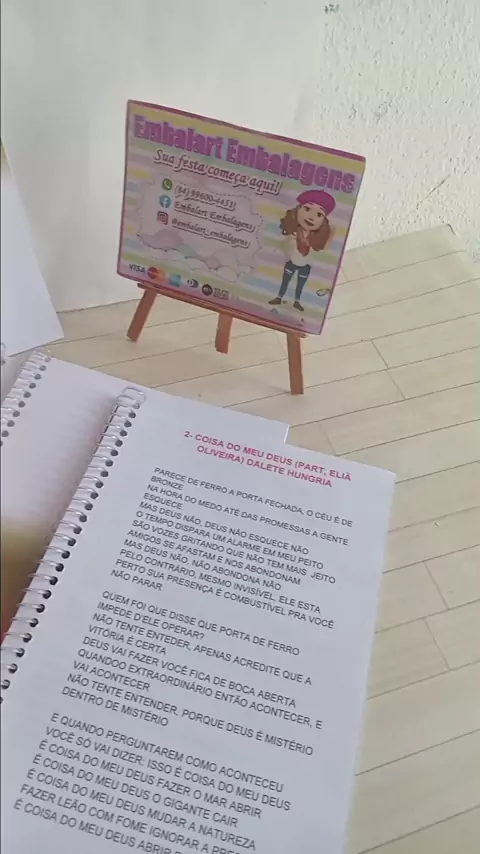 Embalart Embalagens
Sua festa começa aqui!
(64) 99600-4431
Embalart Embalagens
@embalart_embalagens
VISA
2- COISA DO MEU DEUS (PART, ELIÃ
OLIVEIRA) DALETE HUNGRIA
PARECE DE FERRO A PORTA FECHADA, O CÉU É DE
BRONZE
NA HORA DO MEDO ATÉ DAS PROMESSAS A GENTE
ESQUECE
MAS DEUS NÃO, DEUS NÃO ESQUECE NÃO
O TEMPO DISPARA UM ALARME EM MEU PEITO
SÃO VOZES GRITANDO QUE NÃO TEM MAIS JEITO
AMIGOS SE AFASTAM E NOS ABONDONAM
MAS DEUS NÃO, NÃO ABONDONA NÃO
PELO CONTRÁRIO, MESMO INVISÍVEL, ELE ESTA
PERTO SUA PRESENÇA É COMBUSTÍVEL PRA VOCÊ
NÃO PARAR
QUEM FOI QUE DISSE QUE PORTA DE FERRO
IMPEDE D'ELE OPERAR?
NÃO TENTE ENTEDER, APENAS ACREDITE QUE A
VITÓRIA É CERTA
DEUS VAI FAZER VOCÊ FICA DE BOCA ABERTA
QUANDOO EXTRAORDINÁRIO ENTÃO ACONTECER, E
VAI ACONTECER
NÃO TENTE ENTENDER, PORQUE DEUS É MISTÉRIO
DENTRO DE MISTÉRIO
E QUANDO PERGUNTAREM COMO ACONTECEU
VOCÊ SÓ VAI DIZER: ISSO É COISA DO MEU DEUS
É COISA DO MEU DEUS FAZER O MAR ABRIR
É COISA DO MEU DEUS O GIGANTE CAIR
É COISA DO MEU DEUS MUDAR A NATUREZA
FAZER LEÃO COM FOME IGNORAR A
É COISA DO MEU DEUS ABRIR